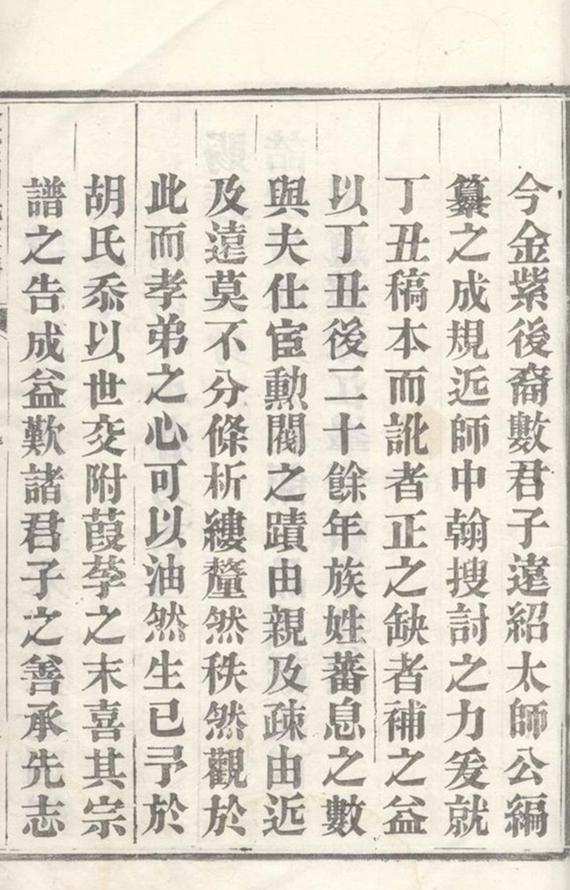 今金紫後裔數君子遠紹太師公編
纂之成規近師中翰搜討之力爰就
丁丑稿本而訛者正之缺者補之益
以丁丑後二十餘年族姓蕃息之數
與夫仕宦勳閥之蹟由親及疎由近
及遠莫不分條析縷釐然秩然觀於
此而孝弟之心可以油然生已予於
胡氏忝以世交附葭莩之末喜其宗
譜之告成益歎諸君子之善承先志